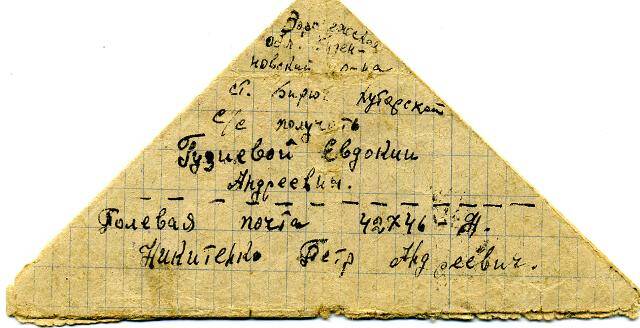 Воронежская
обл. Хрен-
новский р-на
ст. Бирюг хутарской
с/с получеть
Гузиевой Евдокии
Андреевич.
Полевая почта 42746-Я.
Никитенко Петр Андреевич.